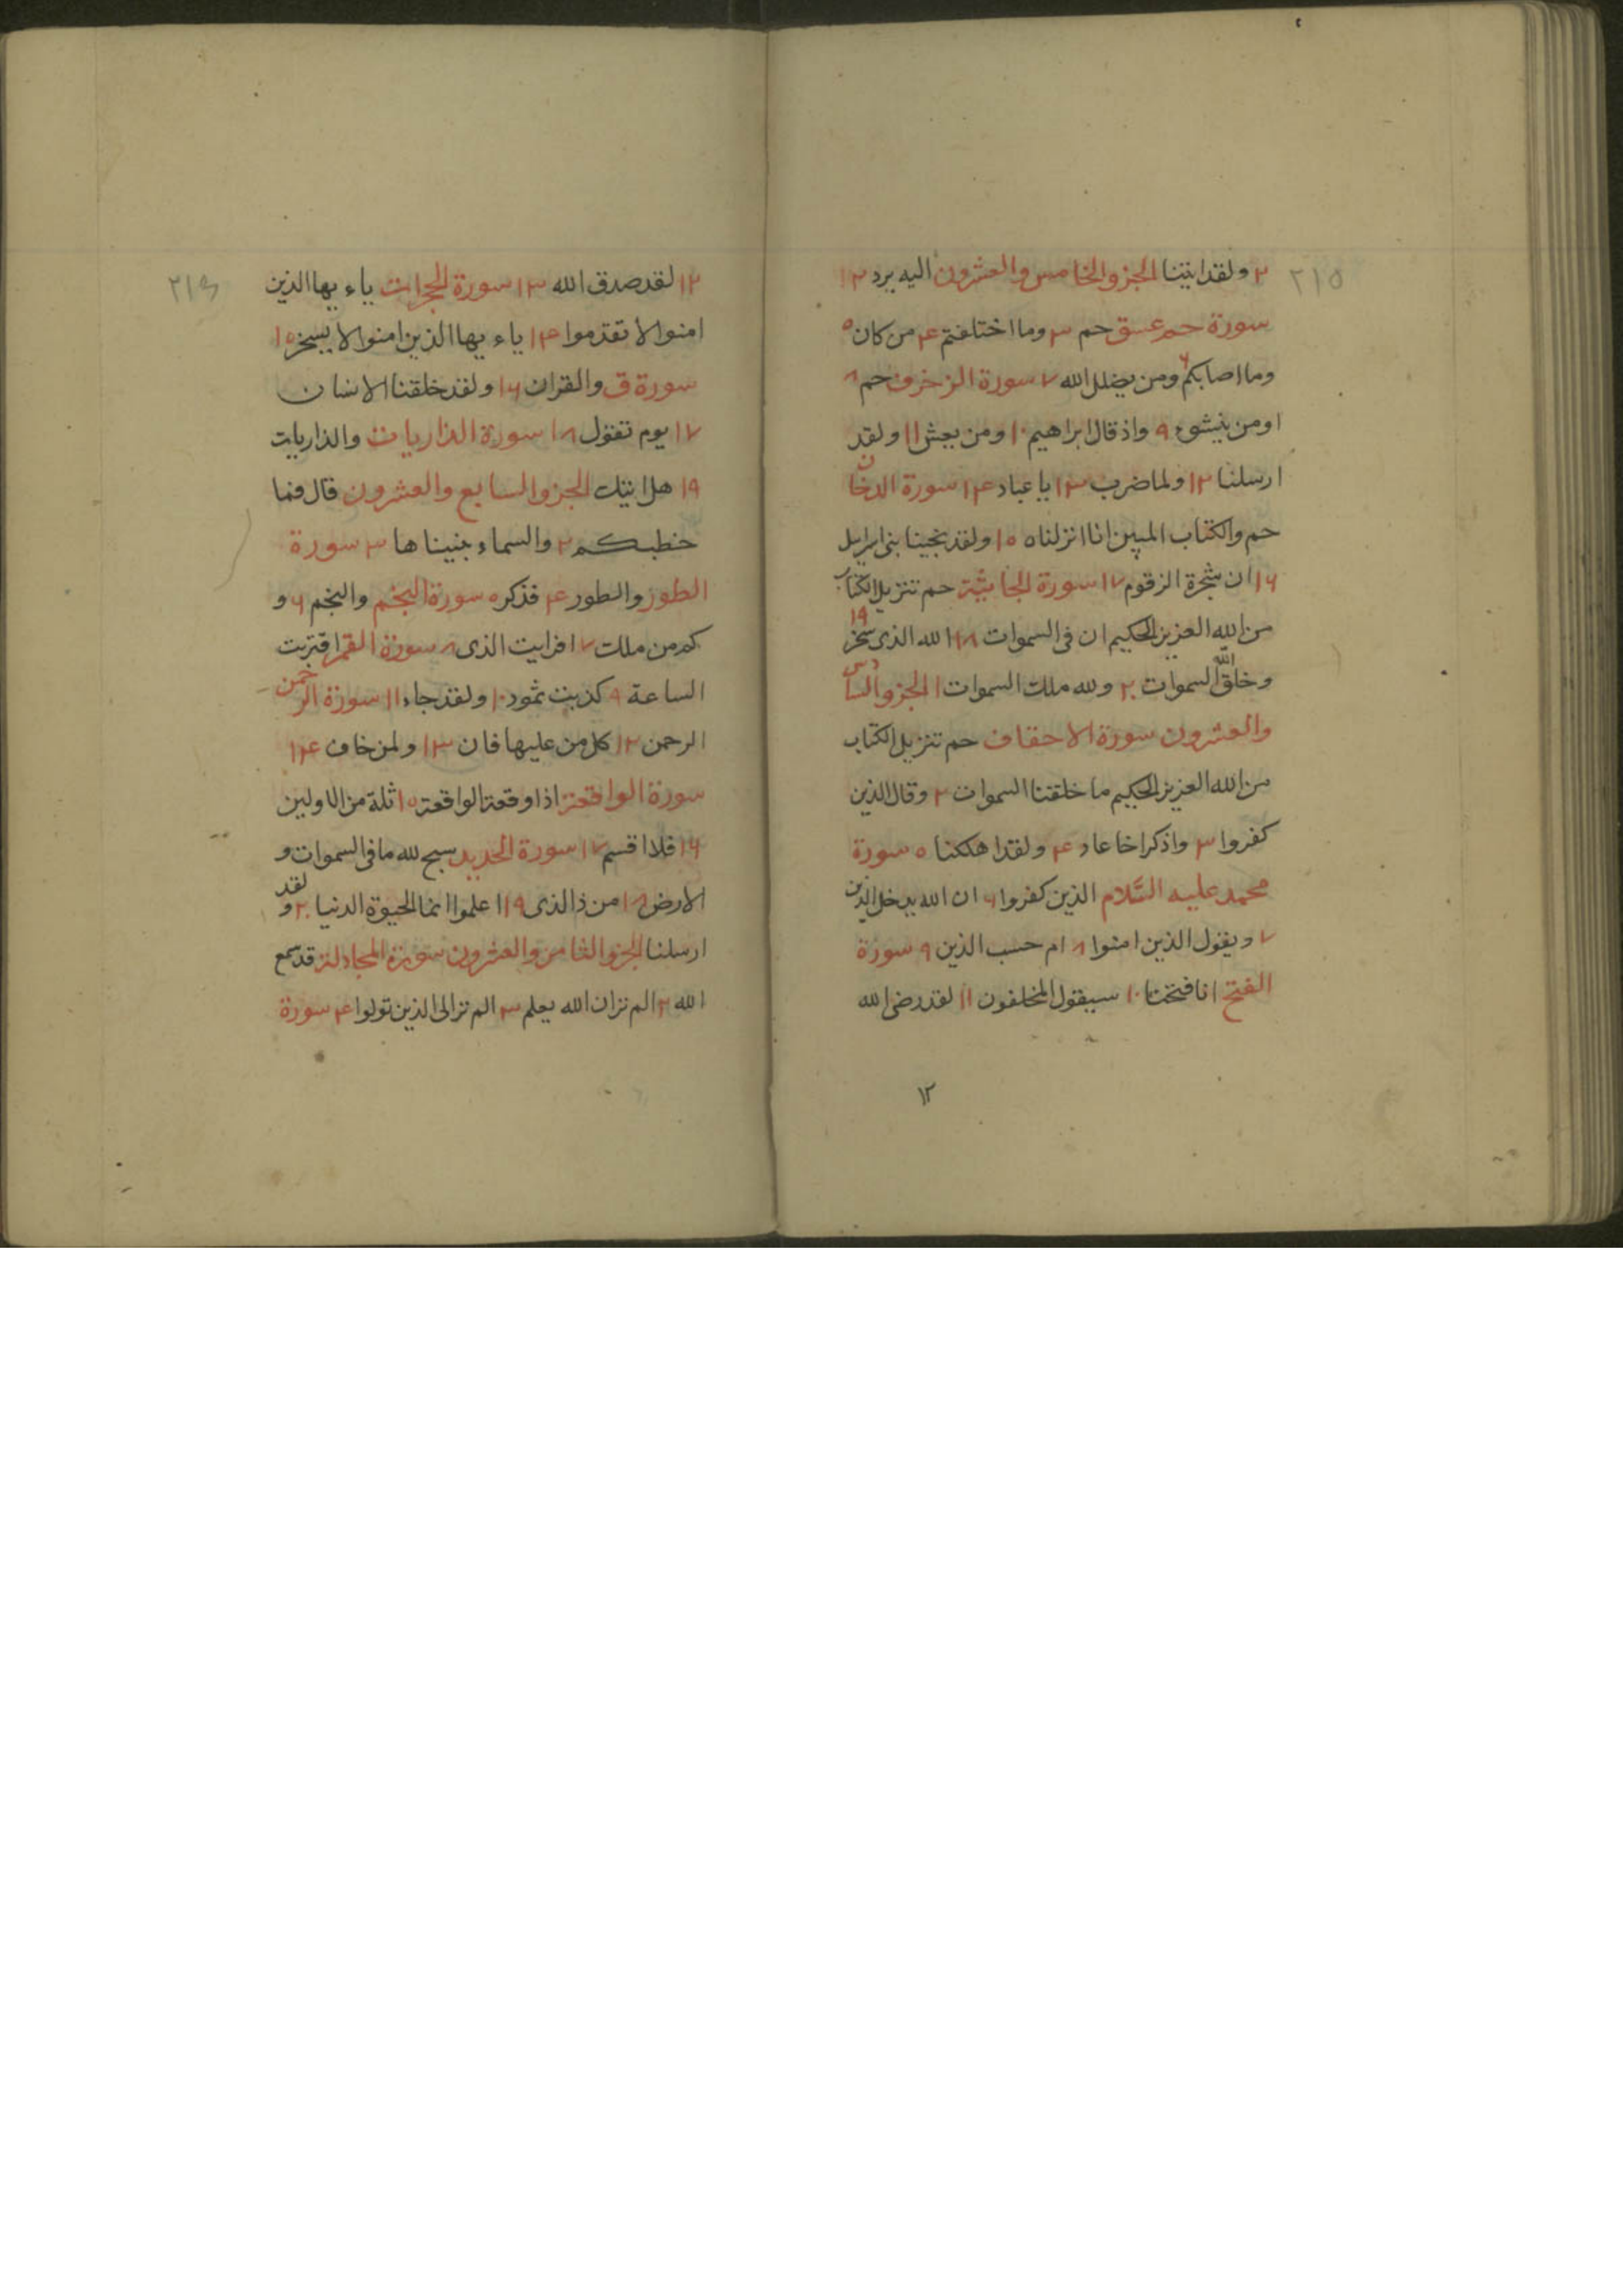 ٢١٥
٢ ولقد اتينا الجزو الخامس والعشرون اليه يرد ١٢
سورة حم عسق حم ٣ وما اختلفتم ٤ من كان ٥
وما اصابكم ٦ ومن يضلل الله ٧ سورة الزخرف حم ٨
اومن ينشوء ٩ واذ قال ابراهيم ١٠ ومن يعش ١١ ولقد
ارسلنا ١٢ ولما ضرب ١٣ يا عباد ١٤ سورة الدخان
حم والكتاب المبين انا انزلناه ١٥ ولقد نجينا بنى اسرايل
١٦ ان شجرة الزقوم ١٧ سورة الجاثية حم تنزيل الكتاب
من الله العزيز الحكيم ان فى السموات ١٨ الله الذى سخر ١٩
وخلق الله السموات ٢٠ ولله ملك السموات ١ الجزو السادس
والعشرون سورة الاحقاف حم تنزيل الكتاب
من الله العزيز الحكيم ما خلقنا السموات ٢ وقال الذين
كفروا ٣ واذكر اخا عاد ٤ ولقد اهلكنا ٥ سورة
محمد عليه السلام الذين كفروا ٦ ان الله يدخل الذين
٧ ويقول الذين امنوا ٨ ام حسب الذين ٩ سورة
الفتح انا فتحنا ١٠ سيقول المخلفون ١١ لقد رضى الله
١٢
٢١٦
١٢ لقد صدق الله ١٣ سورة الحجرات ياء يها الذين
امنوا لا تقدموا ١٤ ياء يها الذين امنوا لا يسخر ١٥
سورة ق والقران ١٦ ولقد خلقنا الانسان
١٧ يوم تقول ١٨ سورة الذاريات والذاريات
١٩ هل اتيك الجزو السابع والعشرون قال فما
خطبكم ٢ والسماء بنيناها ٣ سورة
الطور والطور ٤ فذكر ٥ سورة النجم والنجم ٦ و
كم من ملك ٧ افرايت الذى ٨ سورة القمر اقتربت
الساعة ٩ كذبت ثمود ١٠ ولقد جاء ١١ سورة الرحمن
الرحمن ١٢ كل من عليها فان ١٣ ولمن خاف ١٤
سورة الواقعة اذا وقعة الواقعة ١٥ ثلة من الاولين
١٦ فلا اقسم ١٧ سورة الحديد سبح لله ما فى السموات و
الارض ١٨ من ذا الذى ١٩ اعلموا انما الحيوة الدنيا ٢٠ ولقد
ارسلنا الجزو الثامن والعشرون سورة المجادلة قد سمع
الله ٢ الم تر ان الله يعلم ٣ الم تر الى الذين تولوا ٤ سورة